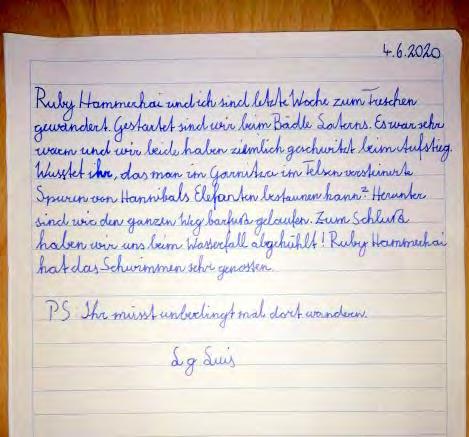 4.6.2020
Ruby Hammerhai und ich sind letzte Woche zum Freschen
gewandert. Gestartet sind wir beim Bädle Laterns. Es war sehr
warm und wir beide haben ziemlich geschwitzt beim Aufstieg.
Wusstet ihr, das man im Garnitza im Felsen versteinerte
Spuren von Hannibals Elefanten bestaunen kann? Herunter
sind wir den ganzen Weg barfuß gelaufen. Zum Schluß
haben wir uns beim Wasserfall abgekühlt! Ruby Hammerhai
hat das Schwimmen sehr genossen.
PS Ihr müsst unbedingt mal dort wandern.
Lg Luis